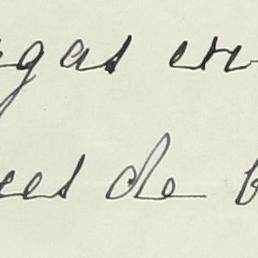 rgas en
ces de b